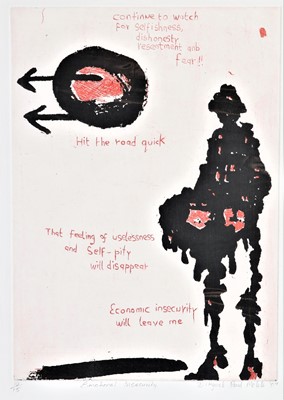 continue to witch
for selfishness,
dishonesty
resentment and
fear!!
Hit the road quick
That feeling of uselessness
and Self-pity
will disappear
Economic insecurity
will leave me